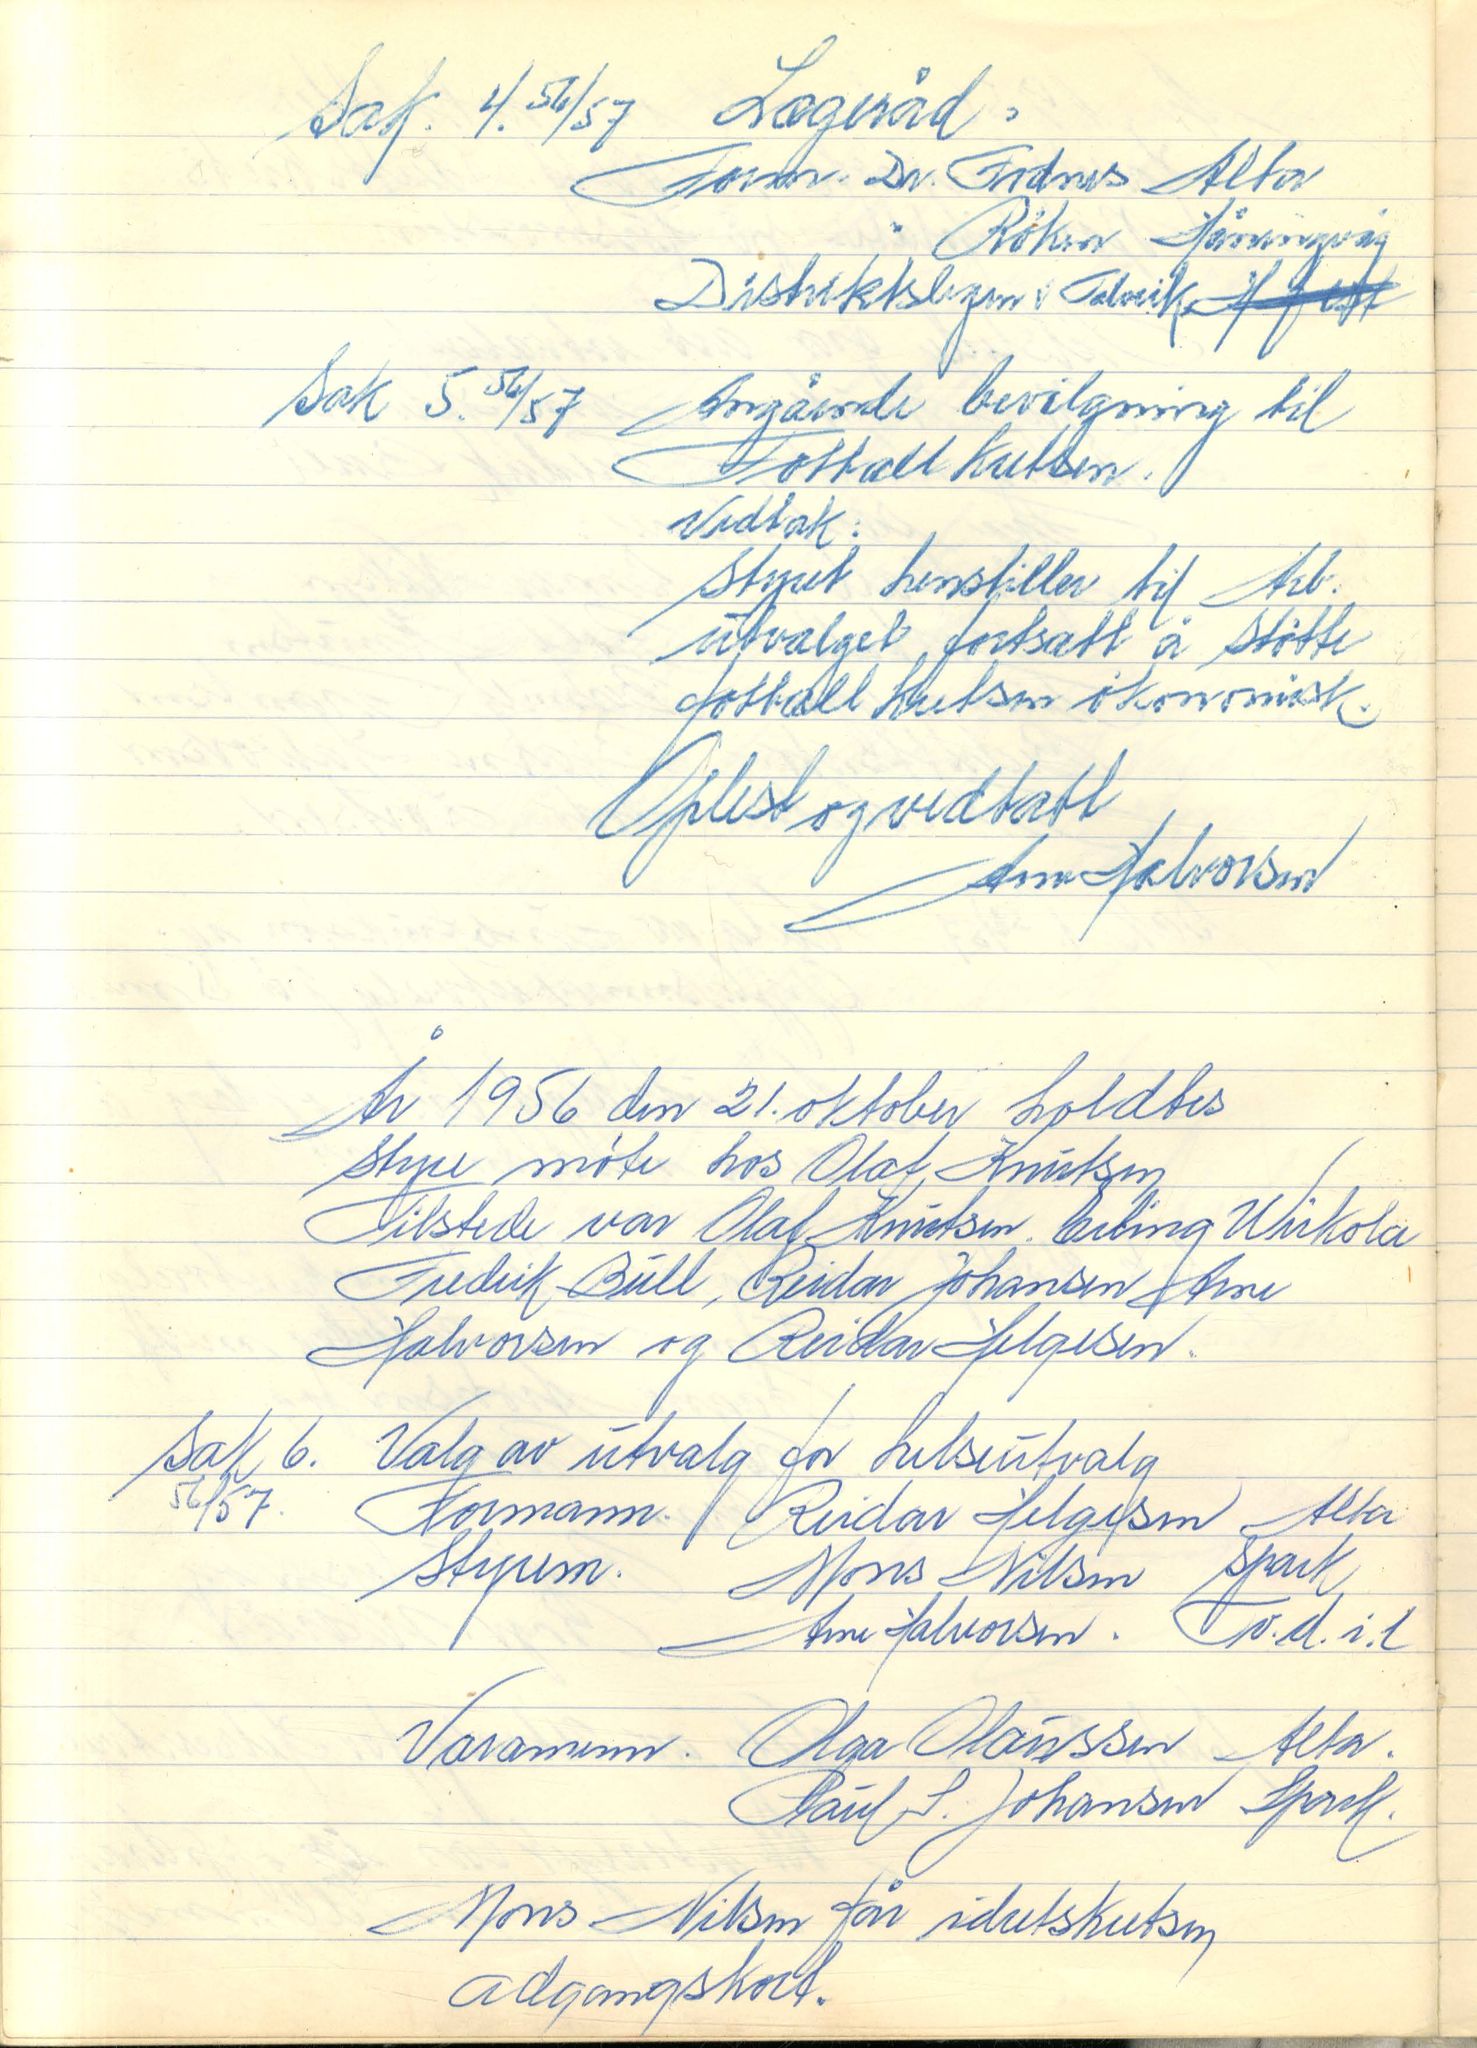 Sak. 4. 56/57 Lægeråd:
Form. Dr. Fodnes Alta
" Røken Honningvåg
Distriktslegen i Talvik
Sak 5. 56/57 Angående bevilgning til
Fotball kretsen.
Vedtak:
Styret henstiller til Arb.
utvalget fortsatt å støtte
fotball kretsen økonomisk.
Oplest og vedtatt
Arne Halvorsen
År 1956 den 21. oktober holdtes
styre møte hos Olaf Knutsen
Tilstede var Olaf Knutsen. Erling Wirkola
Fredrik Bull, Reidar Johansen Arne
Halvorsen og Reidar Helgesen.
Sak 6. Valg av utvalg for helseutvalg
56/57. Formann. Reidar Helgesen Alta
Styrem. Mons Nilsen Spark
Arne Halvorsen. T.v.d.i.l
Varamenn. Olga Olaussen Alta.
Paul S. Johansen Spark.
Mons Nilsen får idretskretsen
adgangskort.